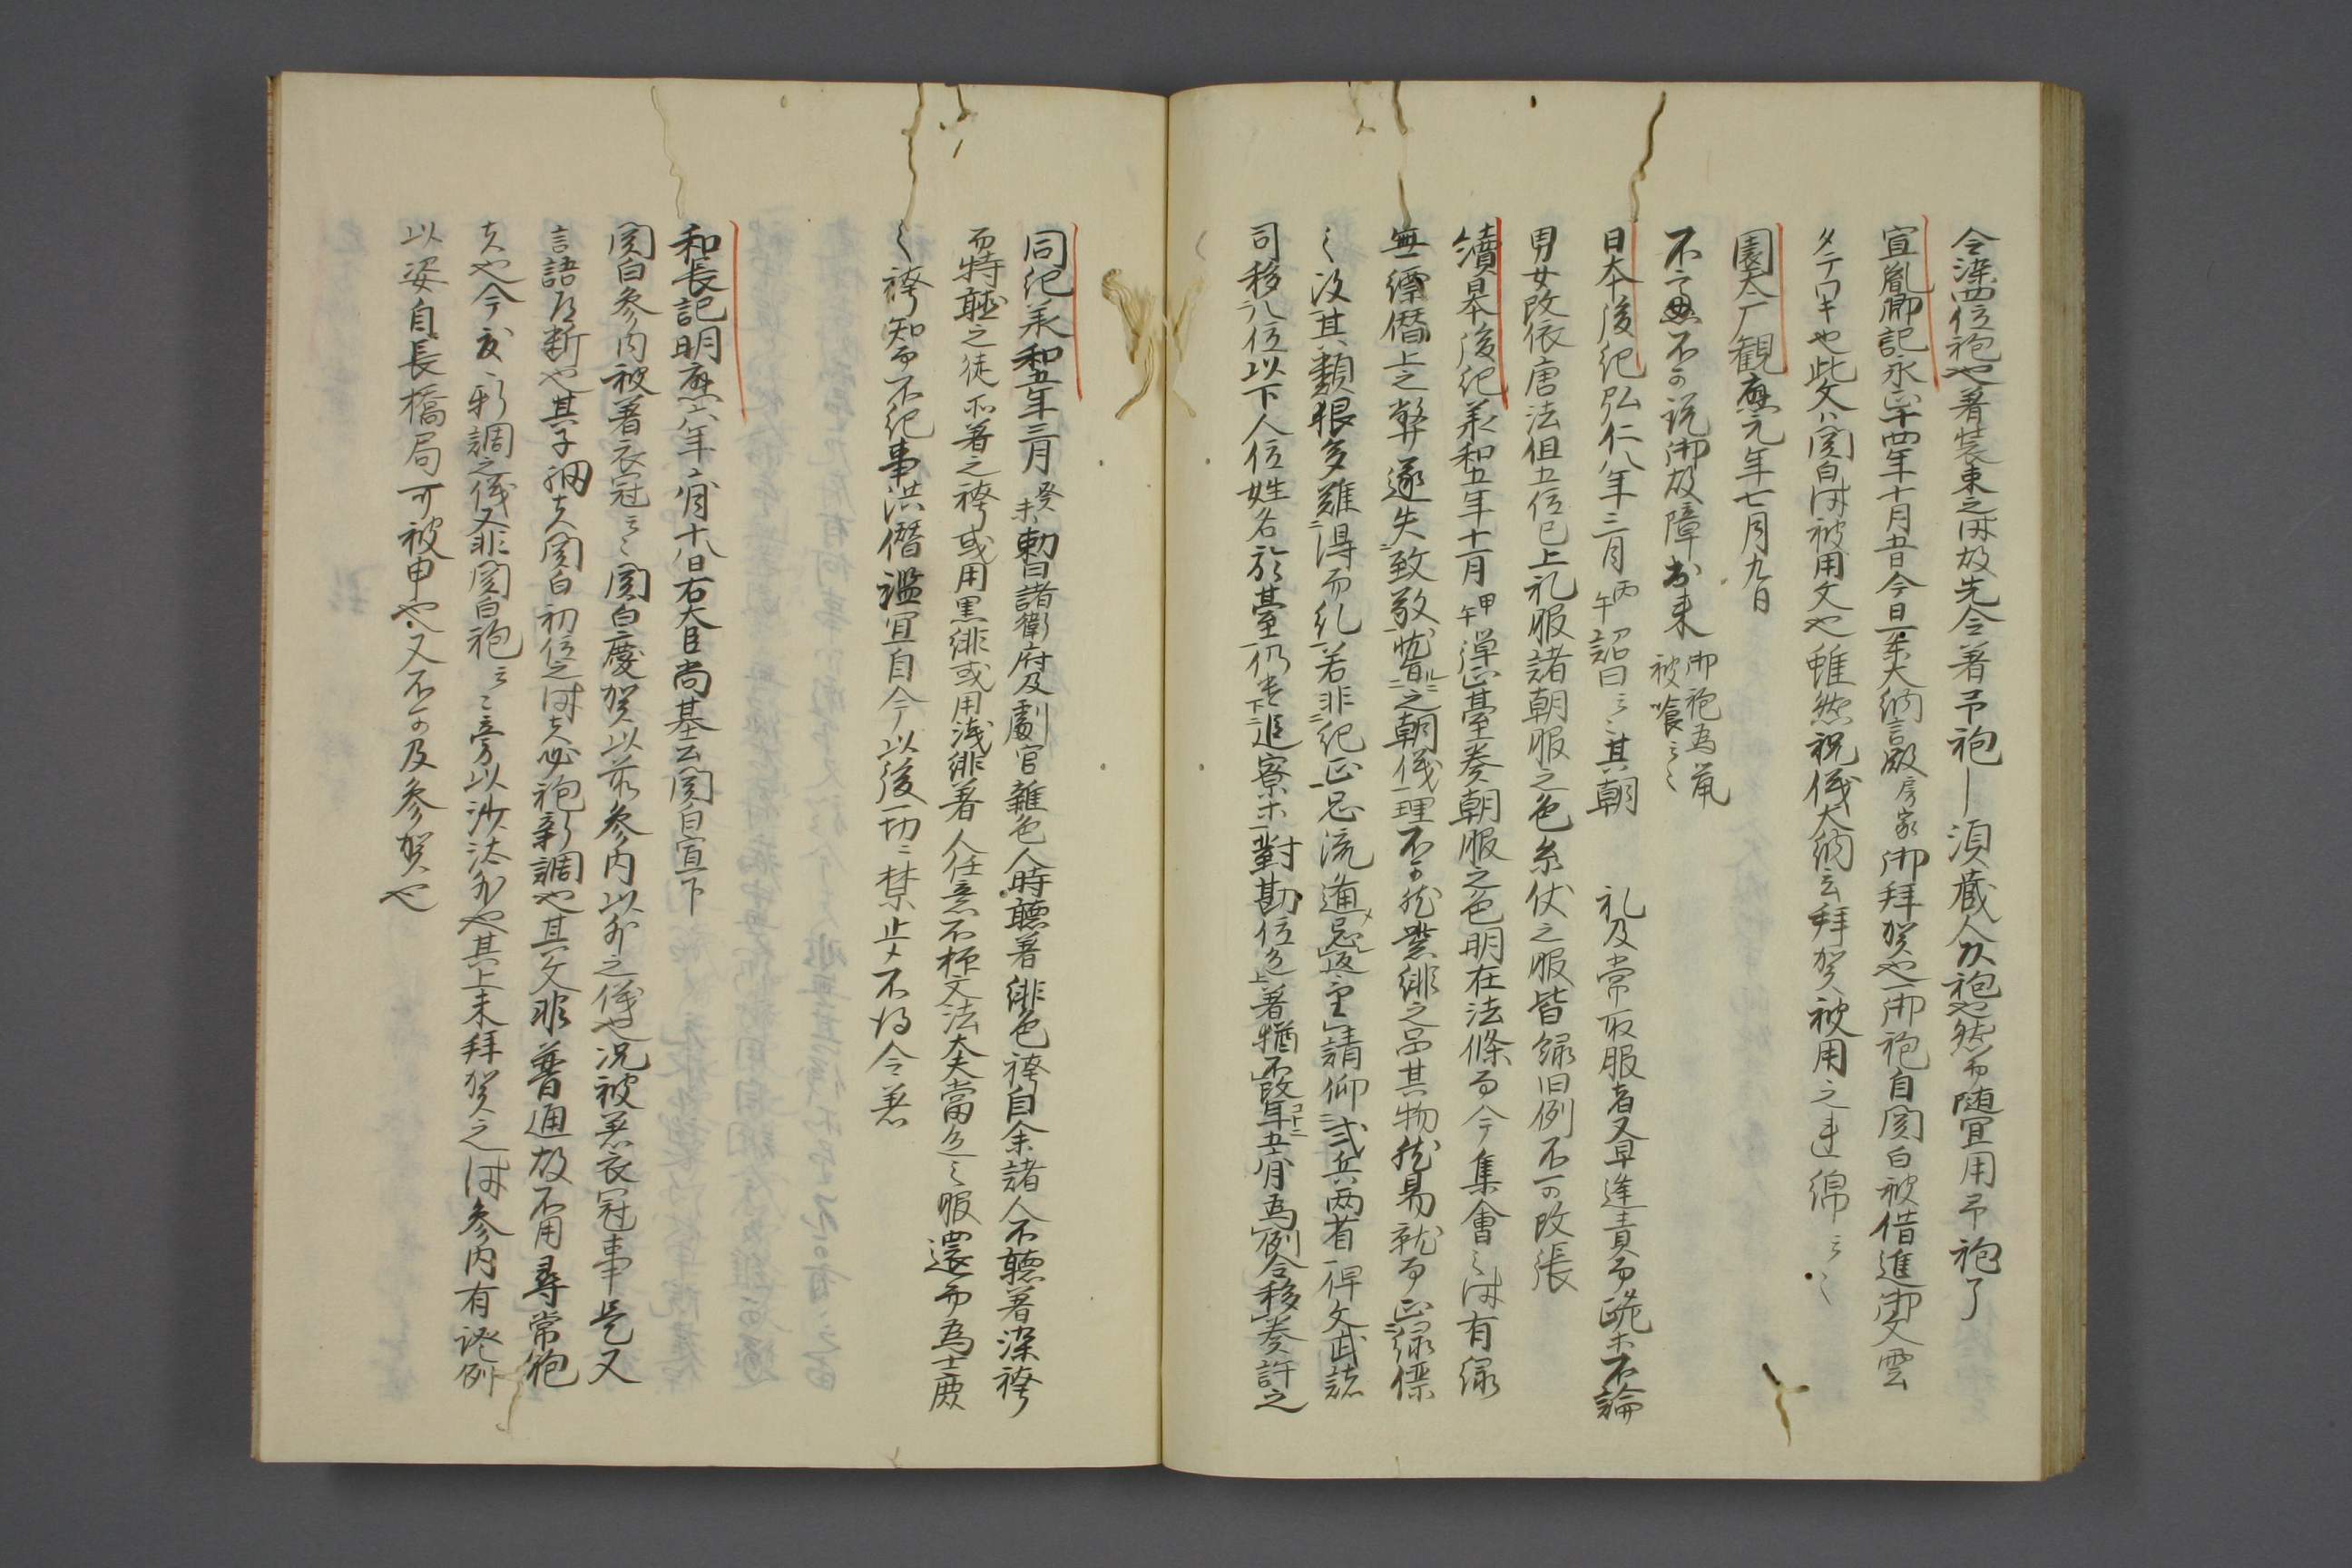 令染四位袍也著装束之時故先令著弔袍—須蔵人方袍也然而随宜用弔袍了
宣胤卿記永正十四年十月廿五日今日一条大納言殿房家御拝賀也御袍自関白被借進御文雲
タテワキ也此文ハ関白時被用文也雖然祝儀大納言拝賀被用之連綿云々
園太暦観應元年七月九日
不之無不可説御故障出来御袍為鼠被喰云々
日本後紀弘仁八年三月丙午詔曰云々其朝 礼及常取服者又早逢責而 不論
男女改依唐法但五位已上礼服諸朝服之色糸仗之服皆縁旧例不可改張
續日本後紀承和五年十一月甲午弾正臺奏朝服之色明在法條而今集會之時有緑
無縹僭上之弊遂失致敬 之朝儀理不可然 緋之品其物然易就而正緑縹
之没其類狠多難得而糺若非紀正恐流遁忘返望請仰式兵両省俾文武諸
司移八位以下人位姓名於臺仍 進寮未對勘位色著猶不改年五月為例令移奏許之
同紀承和五年三月癸未勅曰諸衛府及劇官雜色人時聴著緋色袴自余諸人不聴著深袴
而特聴之徒不著之袴或用黒緋或用浅緋著人任意不 文法夫當色之服還而為士庶
之袴知而不紀事洪僭濫宜自今以後一切々禁止 不得令着
和長記明應六年六月十八日右大臣尚基公関白宣下
関白参内被著衣冠云々関白慶賀以前参内以外之儀也況被著衣冠事是又
言語道断也其子細者関白初位之時者必袍新調也其文非普通故不用尋常袍
者也今度新調之儀又非関白袍云々旁以沙汰外也其上未拝賀之時参内有證例
以姿自長橋局可被申也又不可及参賀也